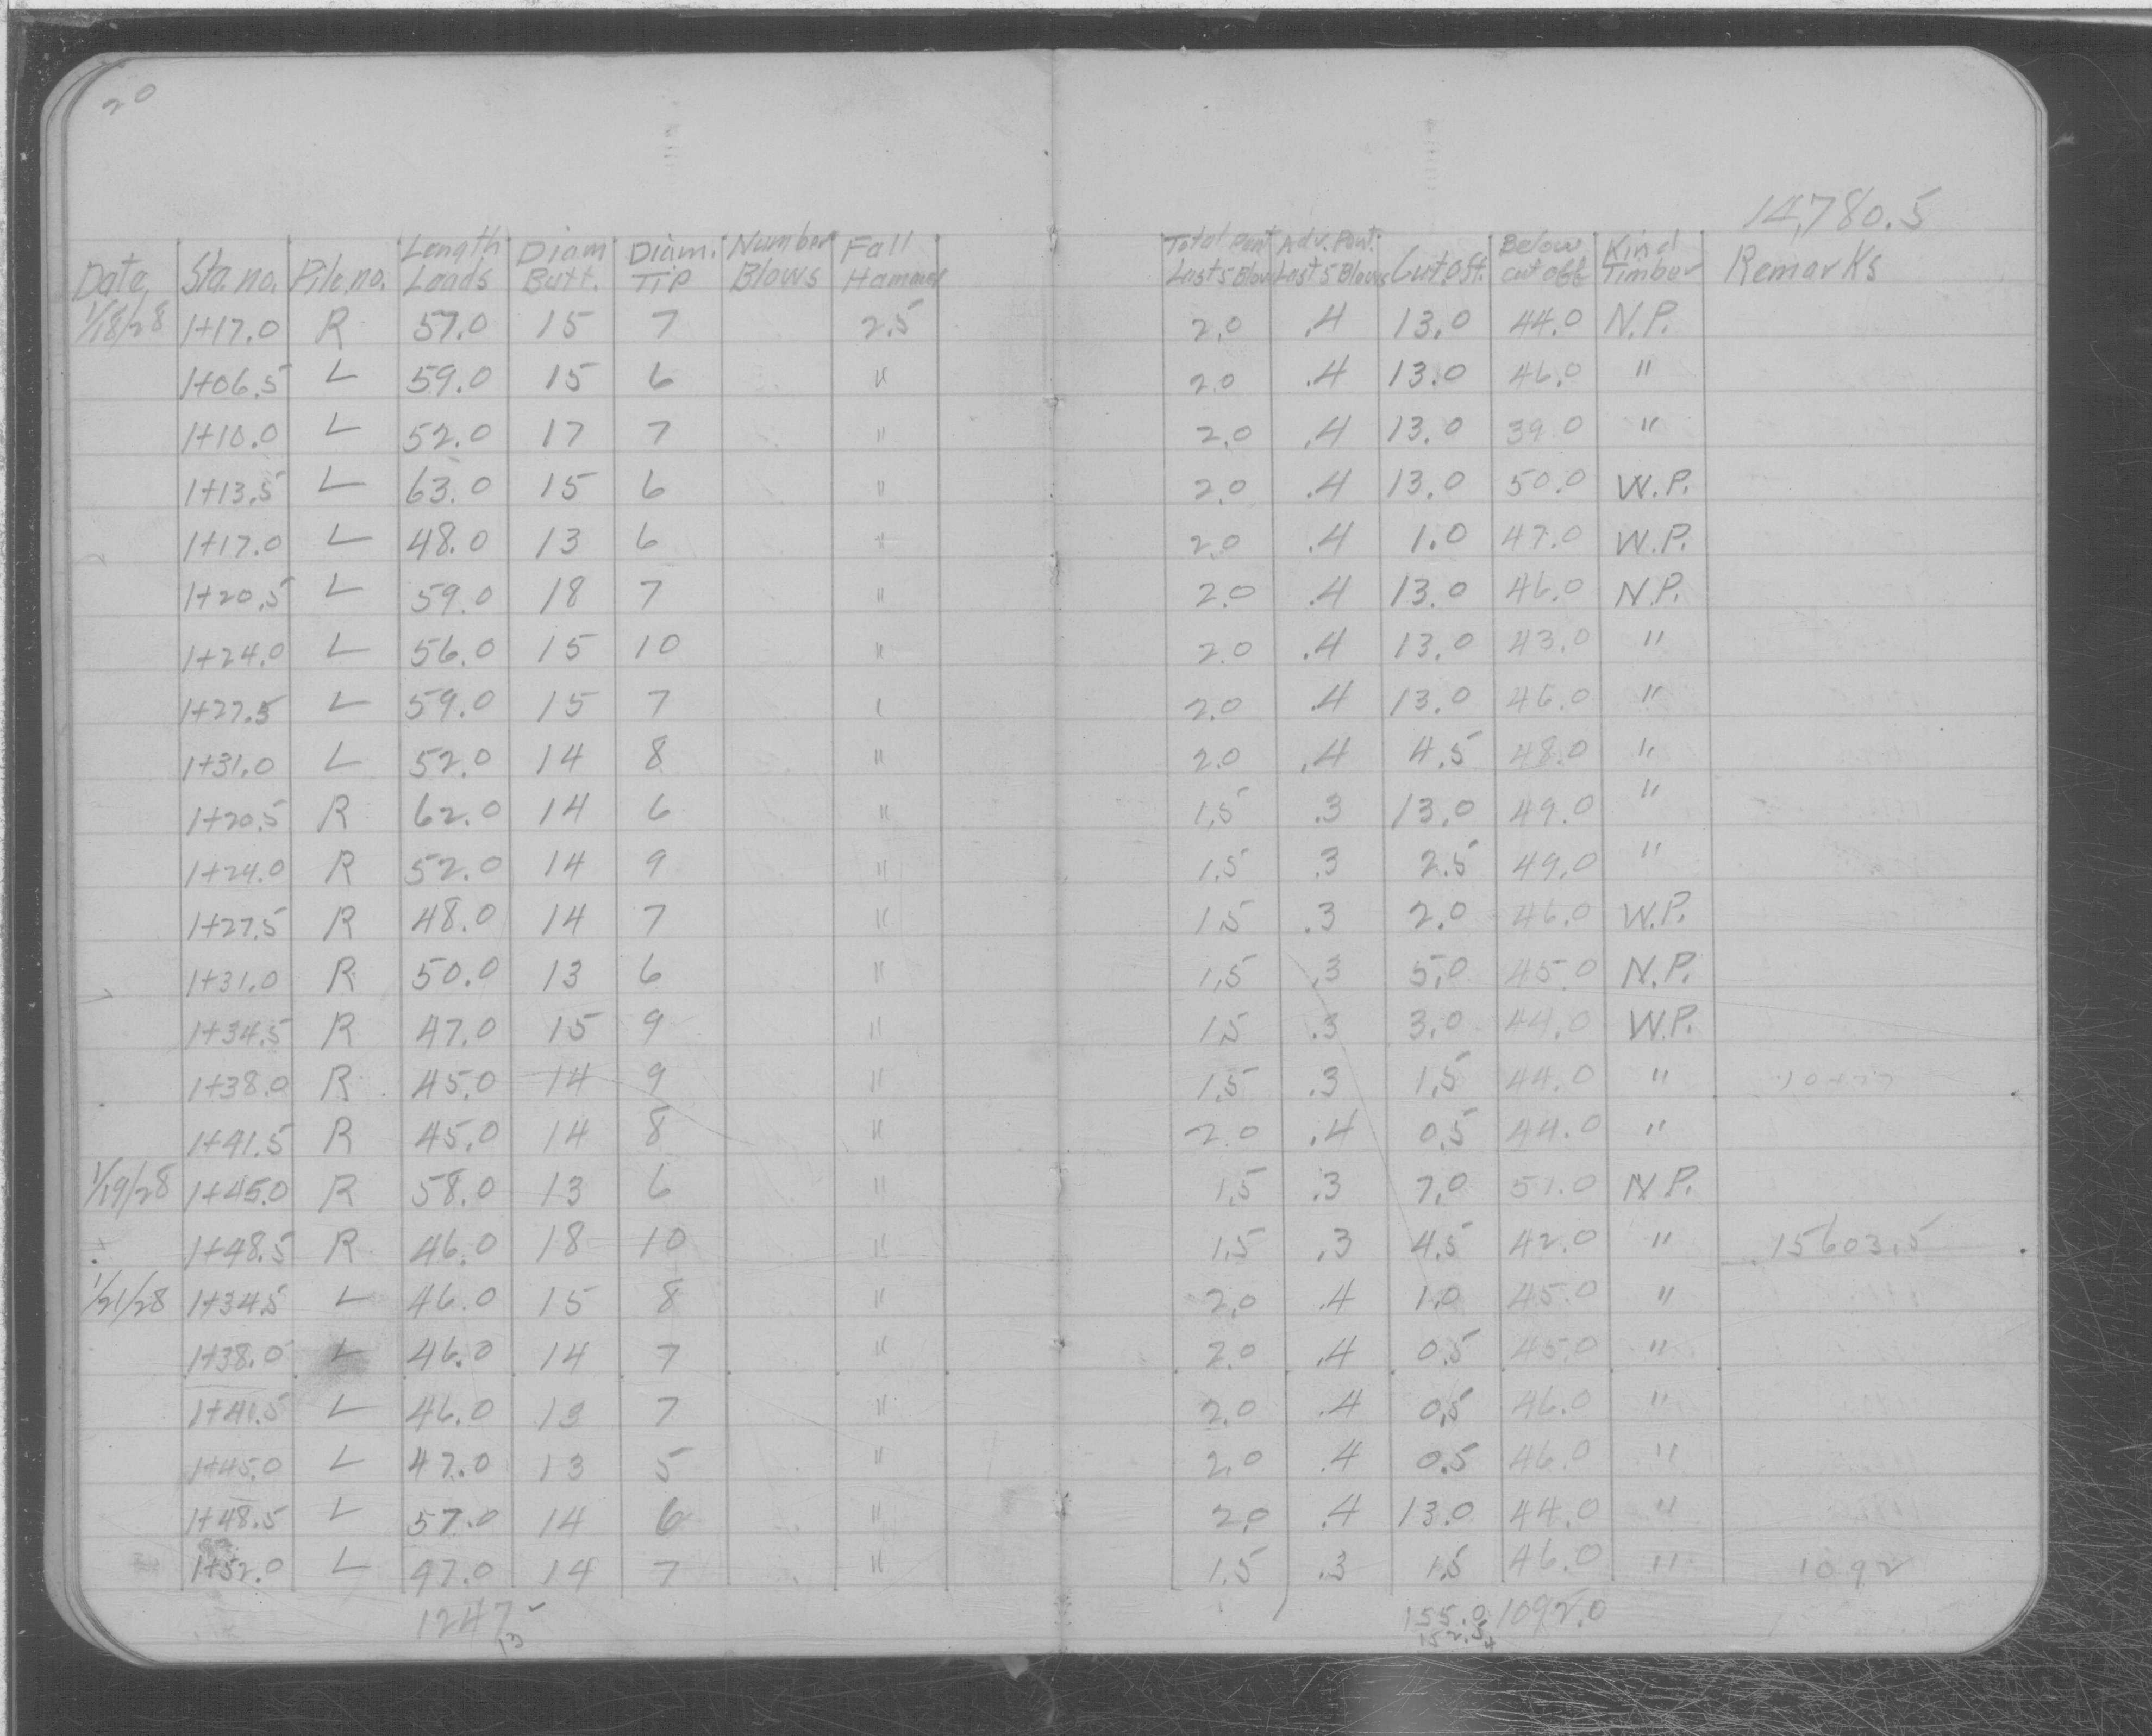 20
14,780.5
Date Sta. no. Pile. no. Length Leads Diam Butt. Diam. Tip Number Blows Fall Hammer Total Pent Last 5 Blows Adv. Pent. Last 5 Blows Cut Off. Below cut off Kind Timber Remarks
1/18/28 1+17.0 R 57.0 15 7 2.5 2.0 .4 13.0 44.0 N.P.
1+06.5 L 59.0 15 6 " 2.0 .4 13.0 46.0 "
1+10.0 L 52.0 17 7 " 2.0 .4 13.0 39.0 "
1+13.5 L 63.0 15 6 " 2.0 .4 13.0 50.0 W.P.
1+17.0 L 48.0 13 6 " 2.0 .4 1.0 47.0 W.P.
1+20.5 L 59.0 18 7 " 2.0 .4 13.0 46.0 N.P.
1+24.0 L 56.0 15 10 " 2.0 .4 13.0 43.0 "
1+27.5 L 59.0 15 7 " 2.0 .4 13.0 46.0 "
1+31.0 L 52.0 14 8 " 2.0 .4 4.5 48.0 "
1+20.5 R 62.0 14 6 " 1.5 .3 13.0 49.0 "
1+24.0 R 52.0 14 9 " 1.5 .3 2.5 49.0 "
1+27.5 R 48.0 14 7 " 1.5 .3 2.0 46.0 W.P.
1+31.0 R 50.0 13 6 " 1.5 .3 5.0 45.0 N.P.
1+34.5 R 47.0 15 9 " 1.5 .3 3.0 44.0 W.P.
1+38.0 R 45.0 14 9 " 1.5 .3 1.5 44.0 "
1+41.5 R 45.0 14 8 " 2.0 .4 0.5 44.0 "
1/19/28 1+45.0 R 58.0 13 6 " 1.5 .3 7.0 51.0 N.P.
1+48.5 R 46.0 18 10 " 1.5 .3 4.5 42.0 " 15603.5
1/21/28 1+34.5 L 46.0 15 8 " 2.0 .4 1.0 45.0 "
1+38.0 L 46.0 14 7 " 2.0 .4 0.5 45.0 "
1+41.5 L 46.0 13 7 " 2.0 .4 0.5 46.0 "
1+45.0 L 47.0 13 5 " 2.0 .4 0.5 46.0 "
1+48.5 L 57.0 14 6 " 2.0 .4 13.0 44.0 "
1+52.0 L 47.0 14 7 " 1.5 .3 1.5 46.0 " 1092
1247 155.0 1092.0
152.5